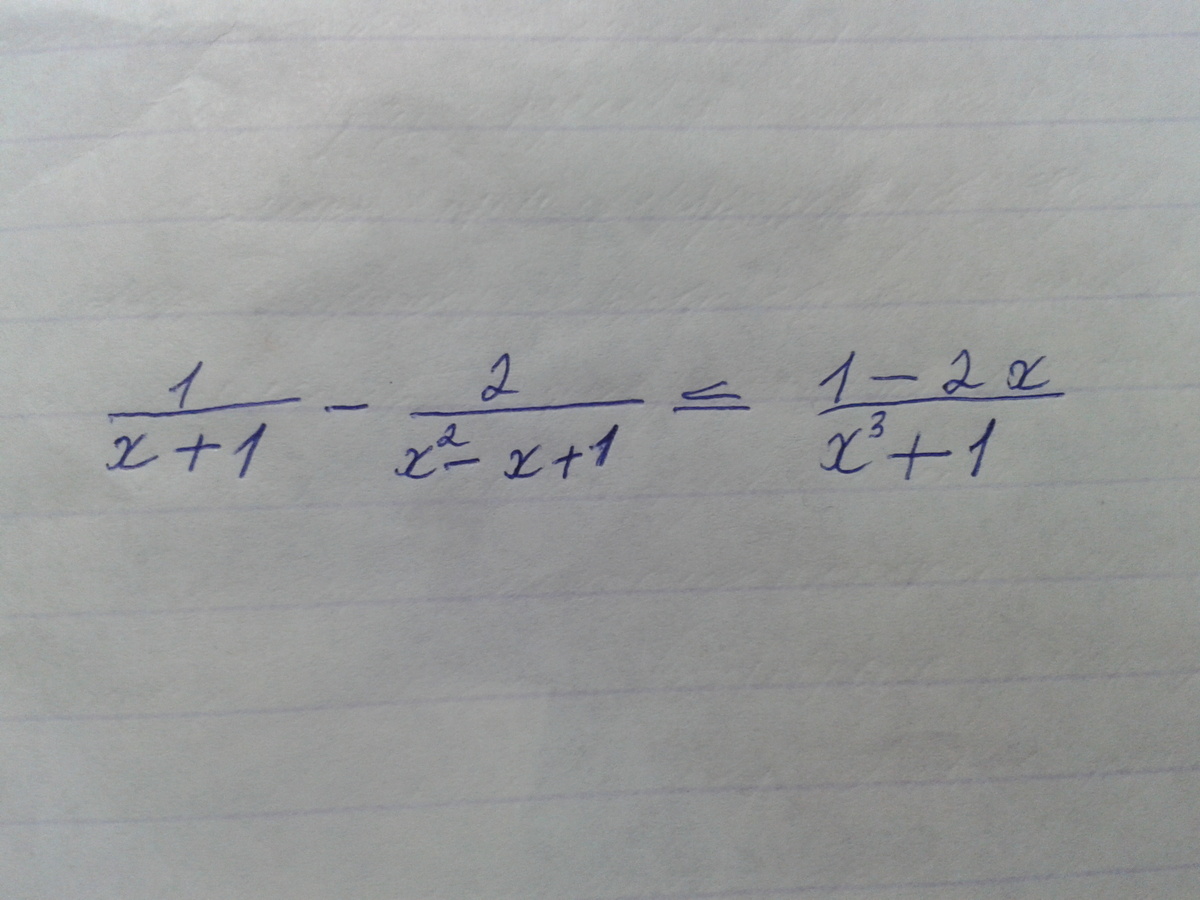 1/(x+1) - 2/(x²-x+1) ≤ (1-2x)/(x³+1)